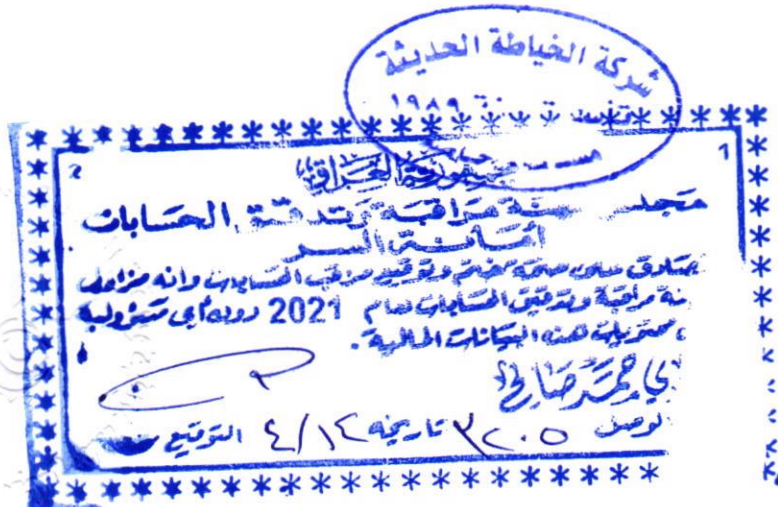 شركة الخياطة الحديثة
سنة ١٩٨٩
جمهورية العراق
مجلس مهنة مراقبة وتدقيق الحسابات
أمانة السر
صادق على صحة ختم وتوقيع مراقب الحسابات وانه مزاول
نة مراقبة وتدقيق الحسابات لعام 2021 دون أي مسؤولية
محتويات هذه البيانات المالية.
صالح
لوصل ٣٢٠٥ تاريخه ٤/١٤ التوقيع